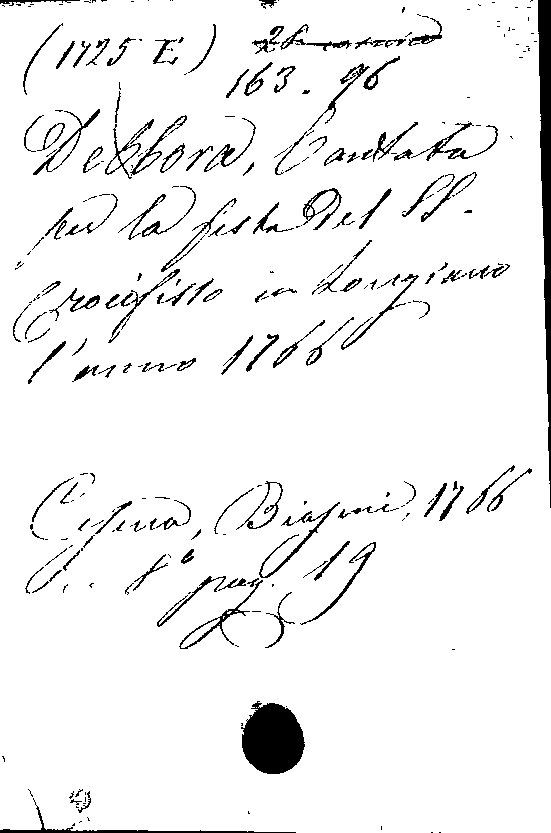 (1725 E)
163. 96
Debbora, Cantata
per la festa del SS.
Crocifisso in Longiano
l'anno 1766
Cesena, Biasini, 1766
8° pag. 19